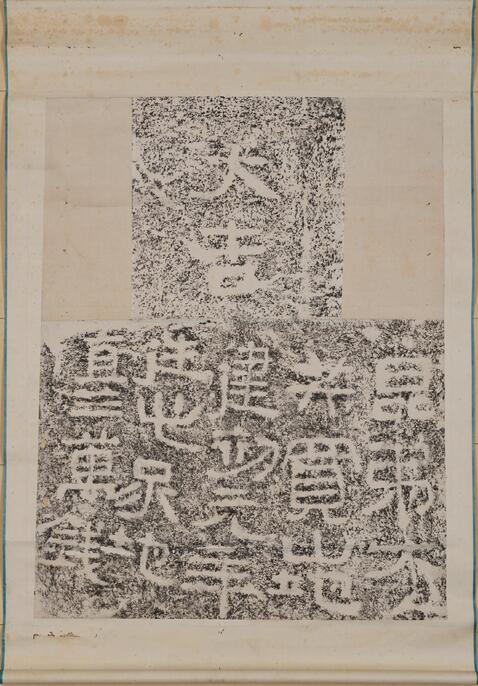 大吉
昆弟六人
共買山地
建初元年
造此冢地
直三萬錢